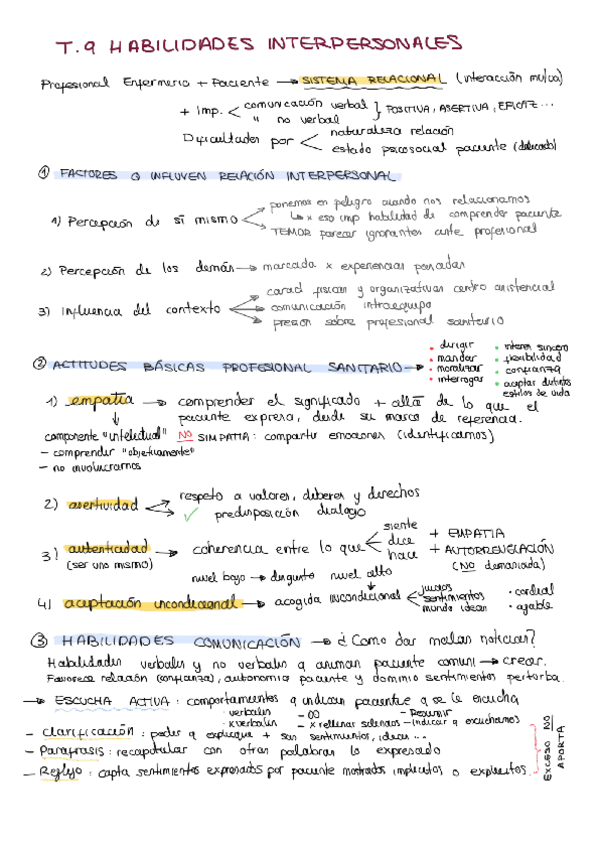 T.9 HABILIDADES INTERPERSONALES
Profesional Enfermería + Paciente → SISTEMA RELACIONAL (interacción mutua)
+ imp. < comunicación verbal
" no verbal } POSITIVA, ASERTIVA, EFICAZ...
Dificultades por < naturaleza relación
estado psicosocial paciente (delicado)
① FACTORES Q INFLUYEN RELACIÓN INTERPERSONAL
1) Percepción de sí mismo
ponemos en peligro cuando nos relacionamos
↳ x eso imp habilidad de comprender paciente
TEMOR parecer ignorantes ante profesional
2) Percepción de los demás → marcada x experiencias pasadas
3) Influencia del contexto
caract físicas y organizativas centro asistencial
comunicación intraequipo
presión sobre profesional sanitario
② ACTITUDES BÁSICAS PROFESIONAL SANITARIO →
• dirigir
• mandar
• moralizar
• interrogar
• interés sincero
• flexibilidad
• confianza
• aceptar distintos estilos de vida
1) empatía → comprender el significado + allá de lo que el
paciente expresa, desde su marco de referencia.
componente "intelectual" NO SIMPATIA: compartir emociones (identificarnos)
- comprender "objetivamente"
- no involucrarnos
2) asertividad
respeto a valores, deberes y derechos
✓ predisposición dialogo
3) autenticidad → coherencia entre lo que < siente
dice
hace
+ EMPATIA
+ AUTORREVELACIÓN
(NO demasiada)
(ser uno mismo)
nivel bajo → disgusto nivel alto
4) aceptación incondicional → acogida INCONDICIONAL
juicios
sentimientos
mundo ideas
• cordial
• afable
③ HABILIDADES COMUNICACIÓN → ¿Como dar malas noticias?
Habilidades verbales y no verbales q animan paciente comuni → crear.
Favorece relación (confianza), autonomia paciente y dominio sentimientos perturba.
→ ESCUCHA ACTIVA: comportamientos q indican paciente q se le escucha
- verbales
- x verbales
- Resumir
- x rellenar silencios - indicar q escuchamos
- Clarificación: pedir q explique + sus sentimientos, ideas...
- Parafrasis: recapitular con otras palabras lo expresado
- Reflejo: capta sentimientos expresados por paciente mostrados implícitos o explícitos.
EXCESO NO
APORTA